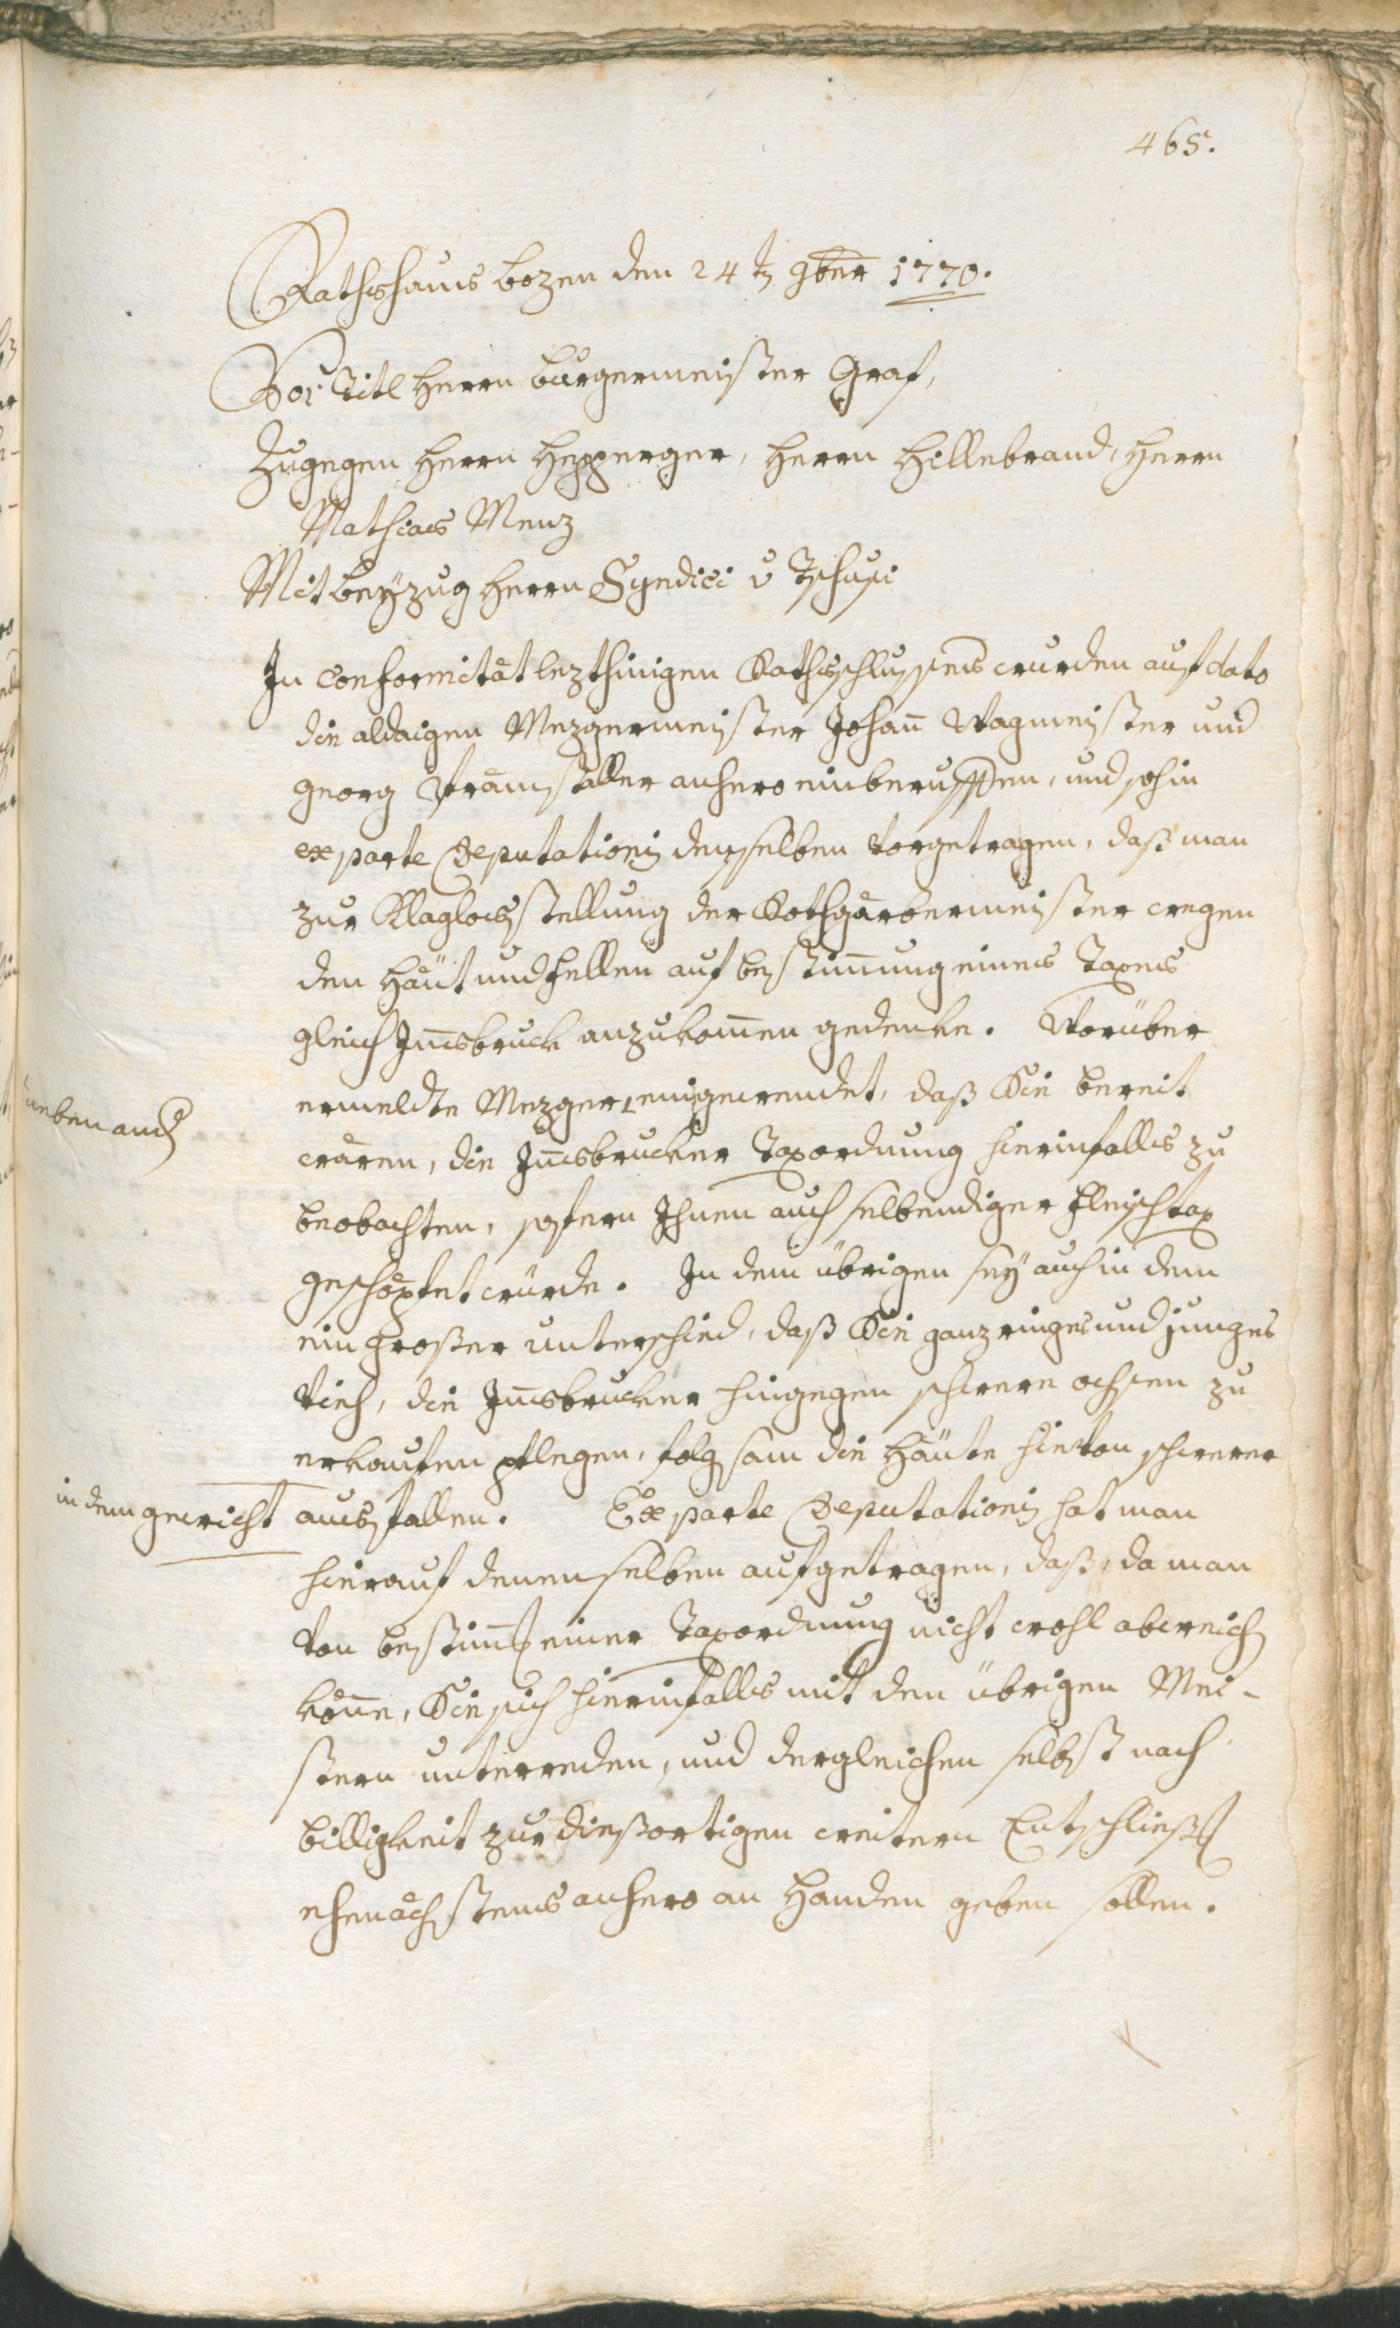 465.
Rathshaus bozen den 24 t. 9ber 1770.
Vor Titl Herrn burgermeister Graf,
Zugegen Herrn Hepperger, Herrn Hillebrand, Herrn
Mathias Menz
Mit beyzug Herrn Syndici v Tschusi
In Conformität lezthinigen Rathsschlusses wurden auf dato
die aldaigen Mezgermeister Johan̄ Wagmeister und
Georg Framstaller anhero einberuffen, und sohin
ex parte Deputationis denselben vorgetragen, daß man
zur Klaglosstellung der Rothgärbermeister wegen
den Häut und fellen auf bestim̄ung eines Taxes
gleich In̄sbruck anzukom̄en gedenke. Worüber
ermeldte Mezger eingewendet, daß Sie bereit
neben auch
wären, die In̄sbrucker Taxordnung hierinfalls zu
beobachten, sofern Ihnen auch selbendiger fleischtax
geschöpfet würde. In dem übrigen sey auch in dem
ein großer unterschied, daß Sie ganz ringes und junges
Vieh, die In̄sbrucker hingegen schwere ochsen zu
erkaufen pflegen, folgsam die Häute hievon schwerer
in dem gewicht
ausfallen. Ex parte Deputationis hat man
hierauf denenselben aufgetragen, daß, da man
von bestim̄g einer Taxordnung nicht wohl abweichen
kön̄e, Sie sich hierinfalls mit den übrigen Mei-
stern unterreden, und dergleichen selbst nach
billigkeit zur dießortigen weitern Entschließg
ehenächstens anhero an Handen geben sollen.